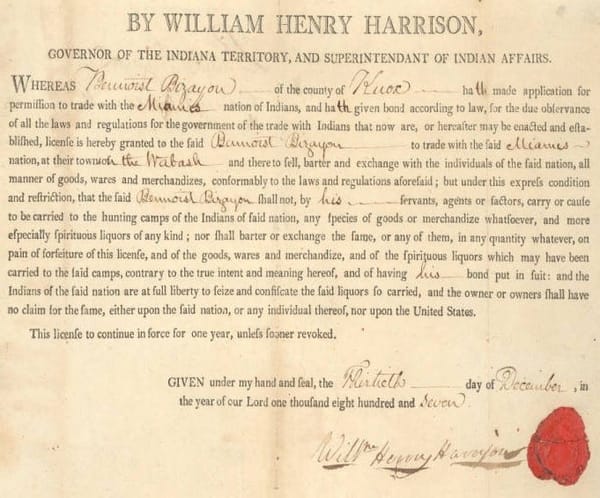 BY WILLIAM HENRY HARRISON,
GOVERNOR OF THE INDIANA TERRITORY, AND SUPERINTENDANT OF INDIAN AFFAIRS.
WHEREAS Bennoist Bizayon of the county of Knox hath made application for
permiſſion to trade with the Miamies nation of Indians, and hath given bond according to law, for the due obſervance
of all the laws and regulations for the government of the trade with Indians that now are, or hereafter may be enacted and eſta-
bliſhed, licenſe is hereby granted to the ſaid Bennoist Bizayon to trade with the ſaid Miamies
nation, at their town on the Wabash and there to ſell, barter and exchange with the individuals of the ſaid nation, all
manner of goods, wares and merchandizes, conformably to the laws and regulations aforeſaid; but under this expreſs condition
and reſtriction, that the ſaid Bennoist Bizayon ſhall not, by his ſervants, agents or factors, carry or cauſe
to be carried to the hunting camps of the Indians of ſaid nation, any ſpecies of goods or merchandize whatſoever, and more
eſpecially ſpirituous liquors of any kind; nor ſhall barter or exchange the ſame, or any of them, in any quantity whatever, on
pain of forfeiture of this licenſe, and of the goods, wares and merchandize, and of the ſpirituous liquors which may have been
carried to the ſaid camps, contrary to the true intent and meaning hereof, and of having his bond put in ſuit: and the
Indians of the ſaid nation are at full liberty to ſeize and confiſcate the ſaid liquors ſo carried, and the owner or owners ſhall have
no claim for the ſame, either upon the ſaid nation, or any individual thereof, nor upon the United States.
This licenſe to continue in force for one year, unleſs ſooner revoked.
GIVEN under my hand and ſeal, the Thirtieth day of December, in
the year of our Lord one thouſand eight hundred and Seven
Willm Henry Harrison